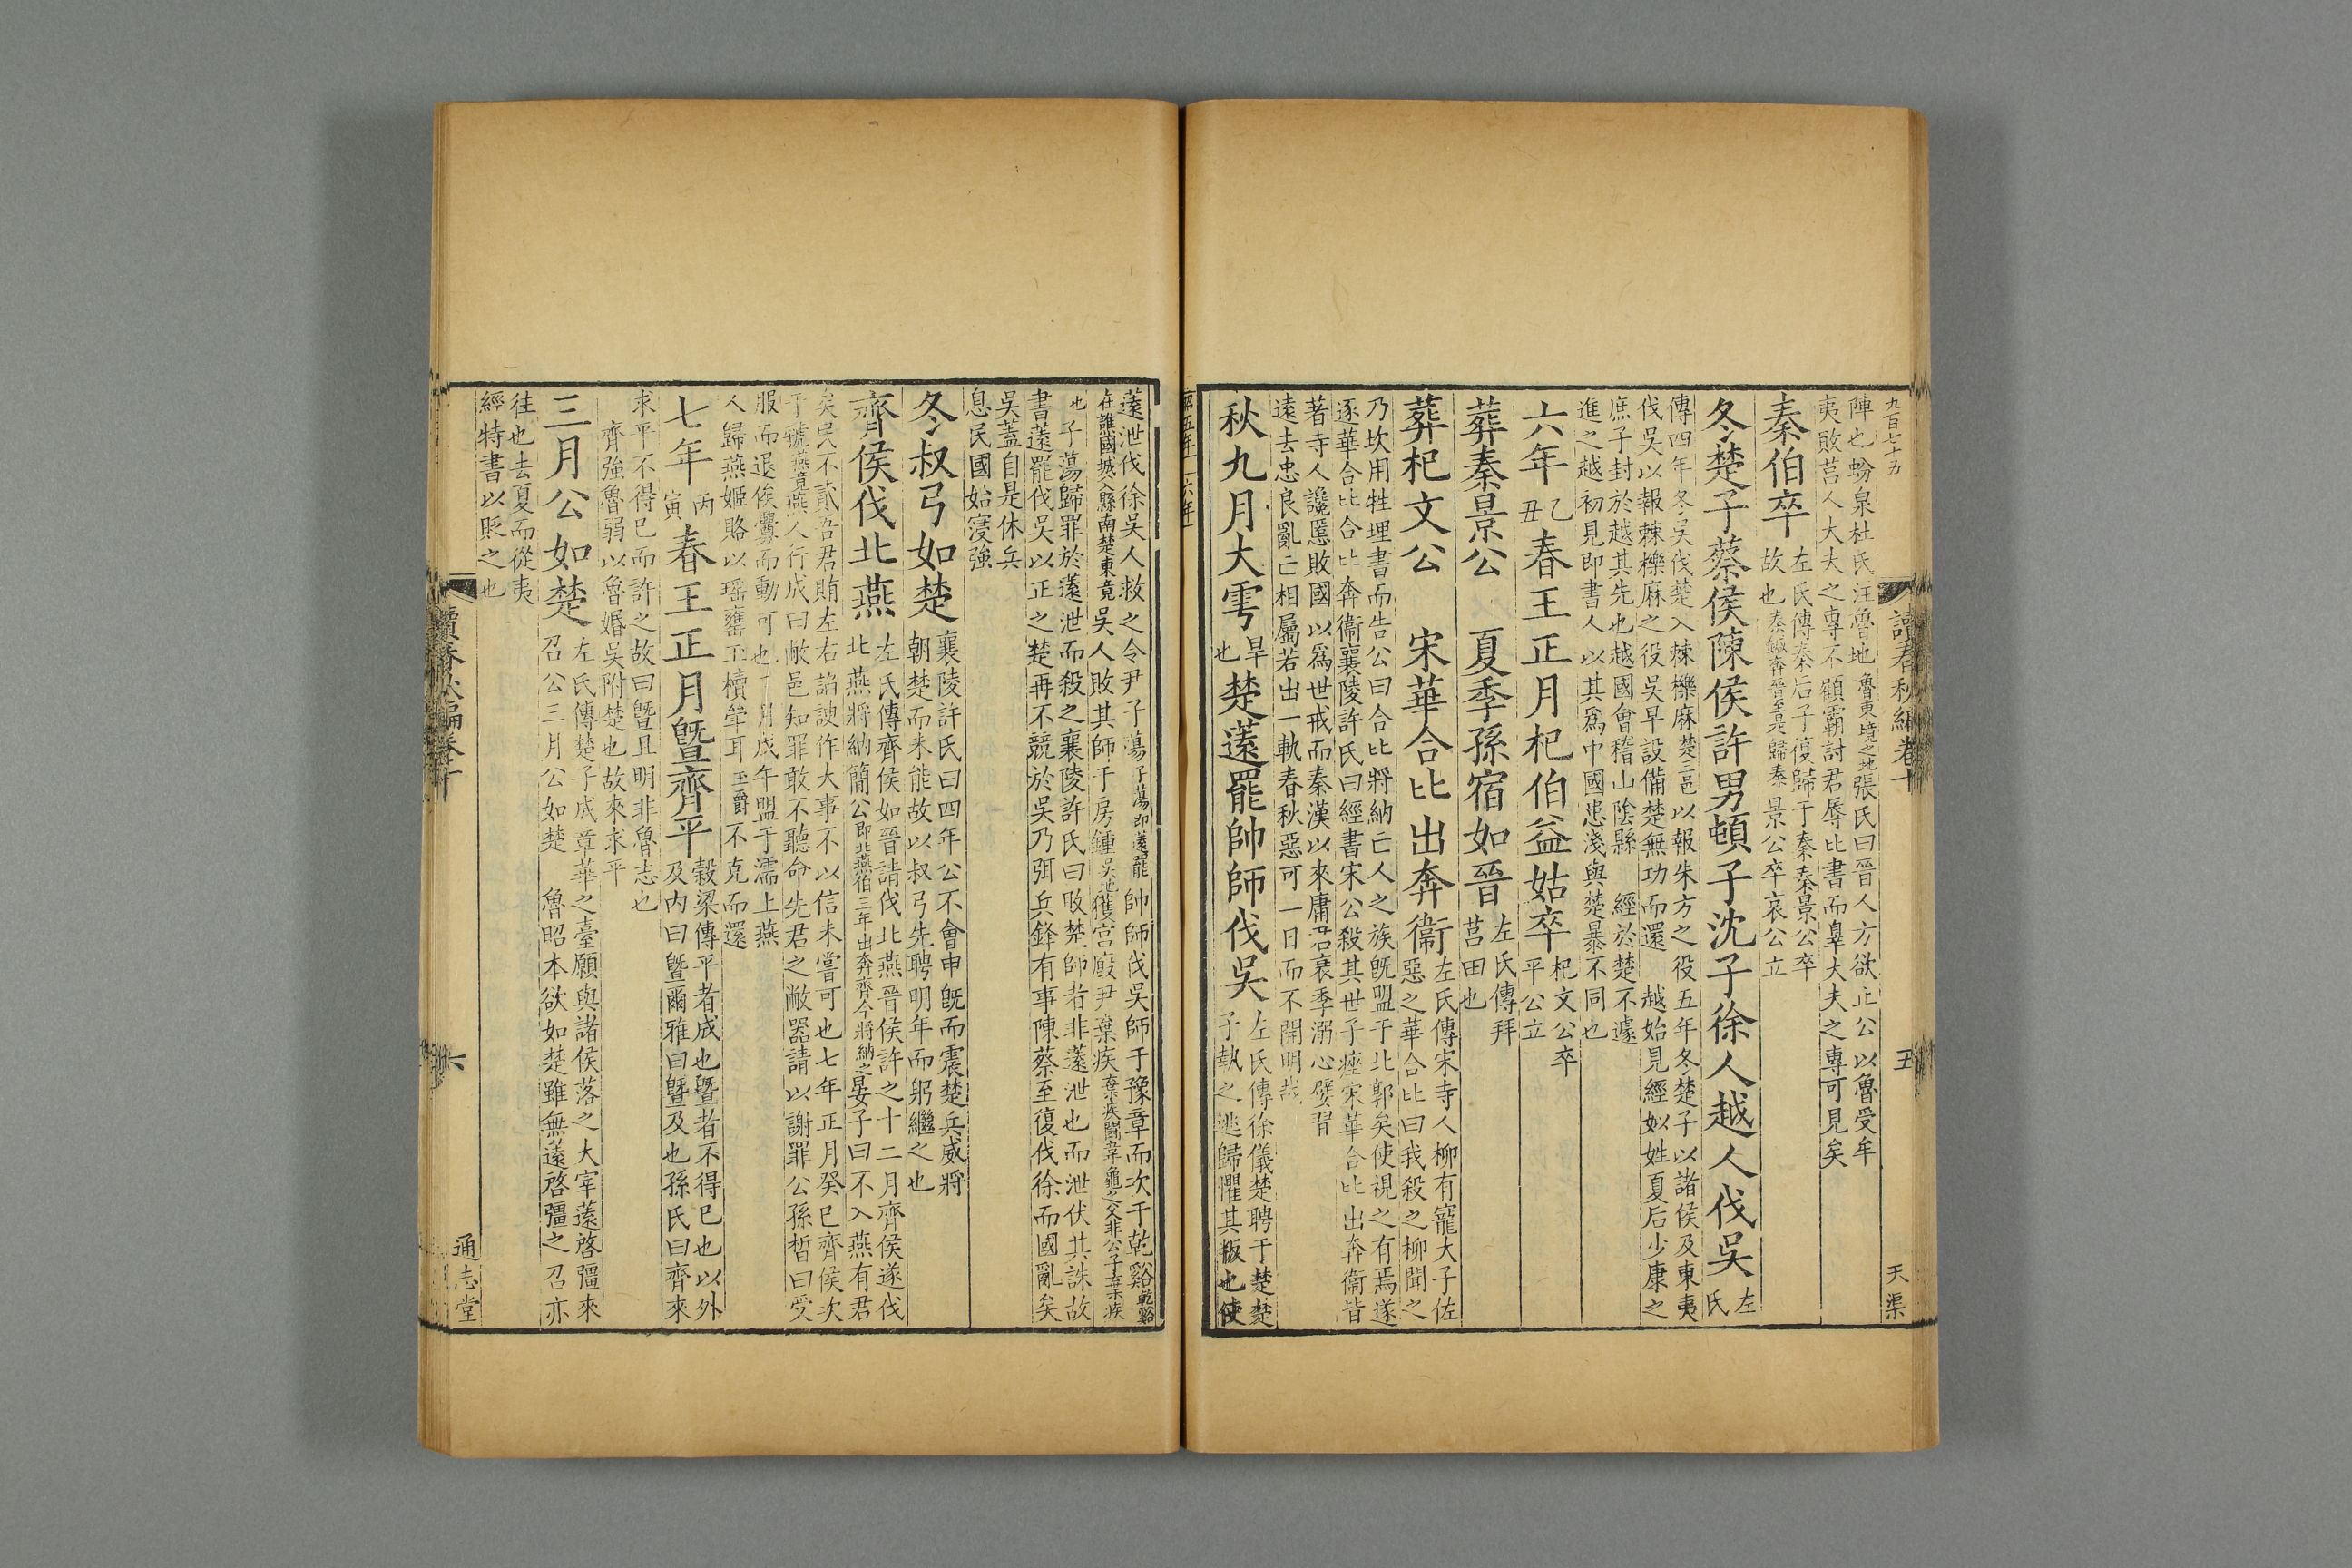 九百七十五
讀春秋編卷十
五
天渠
陣也蚡泉杜氏注魯地魯東境之地張氏曰晉人方欲止公以魯受牟
夷敗莒人大夫之専不顧霸討君辱比書而皐大夫之專可見矣
秦伯卒
左氏傳秦后子復歸于秦秦景公卒
故也秦鍼奔晉至是歸秦景公卒哀公立
冬楚子蔡侯陳侯許男頓子沈子徐人越人伐吳左氏
傳四年冬吳伐楚入棘櫟麻楚三邑以報朱方之役五年冬楚子以諸侯及東夷
伐吳以報棘櫟麻之役吳早設備楚無功而還 越始見經姒姓夏后少康之
庶子封於越其先也越國會稽山陰縣 經於楚不遽
進之越初見即書人以其爲中國患淺與楚暴不同也
六年乙丑春王正月杞伯益姑卒
杞文公卒
平公立
葬秦景公 夏季孫宿如晉
左氏傳拜
莒田也
葬杞文公 宋華合比出奔衞
左氏傳宋寺人柳有寵大子佐
惡之華合比曰我殺之柳聞之
乃坎用牲埋書而告公曰合比將納亡人之族旣盟于北郭矣使視之有焉遂
逐華合比合比奔衞襄陵許氏曰經書宋公殺其世子痤宋華合比出奔衞皆
著寺人讒慝敗國以爲世戒而秦漢以來庸君衰季溺心嬖習
遠去忠良亂亡相屬若出一軌春秋惡可一日而不開明哉
秋九月大雩旱也楚薳罷帥師伐吳
左氏傳徐儀楚聘于楚楚
子執之逃歸懼其叛也使
昭五年 六年
薳泄伐徐吳人救之令尹子蕩子蕩即薳罷帥師伐吳師于豫章而次于乾谿乾谿
在譙國城父縣南楚東竟吳人敗其師于房鍾吳地獲宮廄尹棄疾棄疾鬬韋龜之父非公子棄疾
也子蕩歸罪於薳泄而殺之襄陵許氏曰敗楚師者非薳泄也而泄伏其誅故
書薳罷伐吳以正之楚再不競於吳乃弭兵鋒有事陳蔡至復伐徐而國亂矣
吳蓋自是休兵
息民國始寖強
冬叔弓如楚
襄陵許氏曰四年公不會申旣而震楚兵威將
朝楚而未能故以叔弓先聘明年而躬繼之也
齊侯伐北燕
左氏傳齊侯如晉請伐北燕晉侯許之十二月齊侯遂伐
北燕將納簡公即北燕伯三年出奔齊今將納之晏子曰不入燕有君
矣民不貳吾君賄左右諂諛作大事不以信未嘗可也七年正月癸巳齊侯次
于虢燕竟燕人行成曰敝邑知罪敢不聽命先君之敝器請以謝罪公孫晳曰受
服而退俟釁而動可也二月戊午盟于濡上燕
人歸燕姬賂以瑶罋玉櫝斝耳玉爵不克而還
七年丙寅春王正月曁齊平
穀梁傳平者成也曁者不得已也以外
及內曰曁爾雅曰曁及也孫氏曰齊來
求平不得已而許之故曰曁且明非魯志也
齊強魯弱以魯婚吳附楚也故來求平
三月公如楚
左氏傳楚子成章華之臺願與諸侯落之大宰薳啓彊來
召公三月公如楚 魯昭本欲如楚雖無薳啓彊之召亦
往也去夏而從夷
經特書以貶之也
讀春秋編卷十
六
通志堂